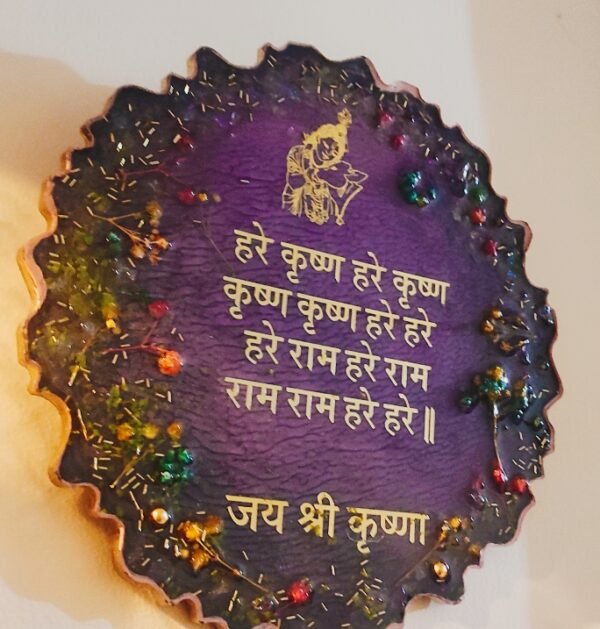 हरे कृष्ण हरे कृष्ण
कृष्ण कृष्ण हरे हरे
हरे राम हरे राम
राम राम हरे हरे॥
जय श्री कृष्णा